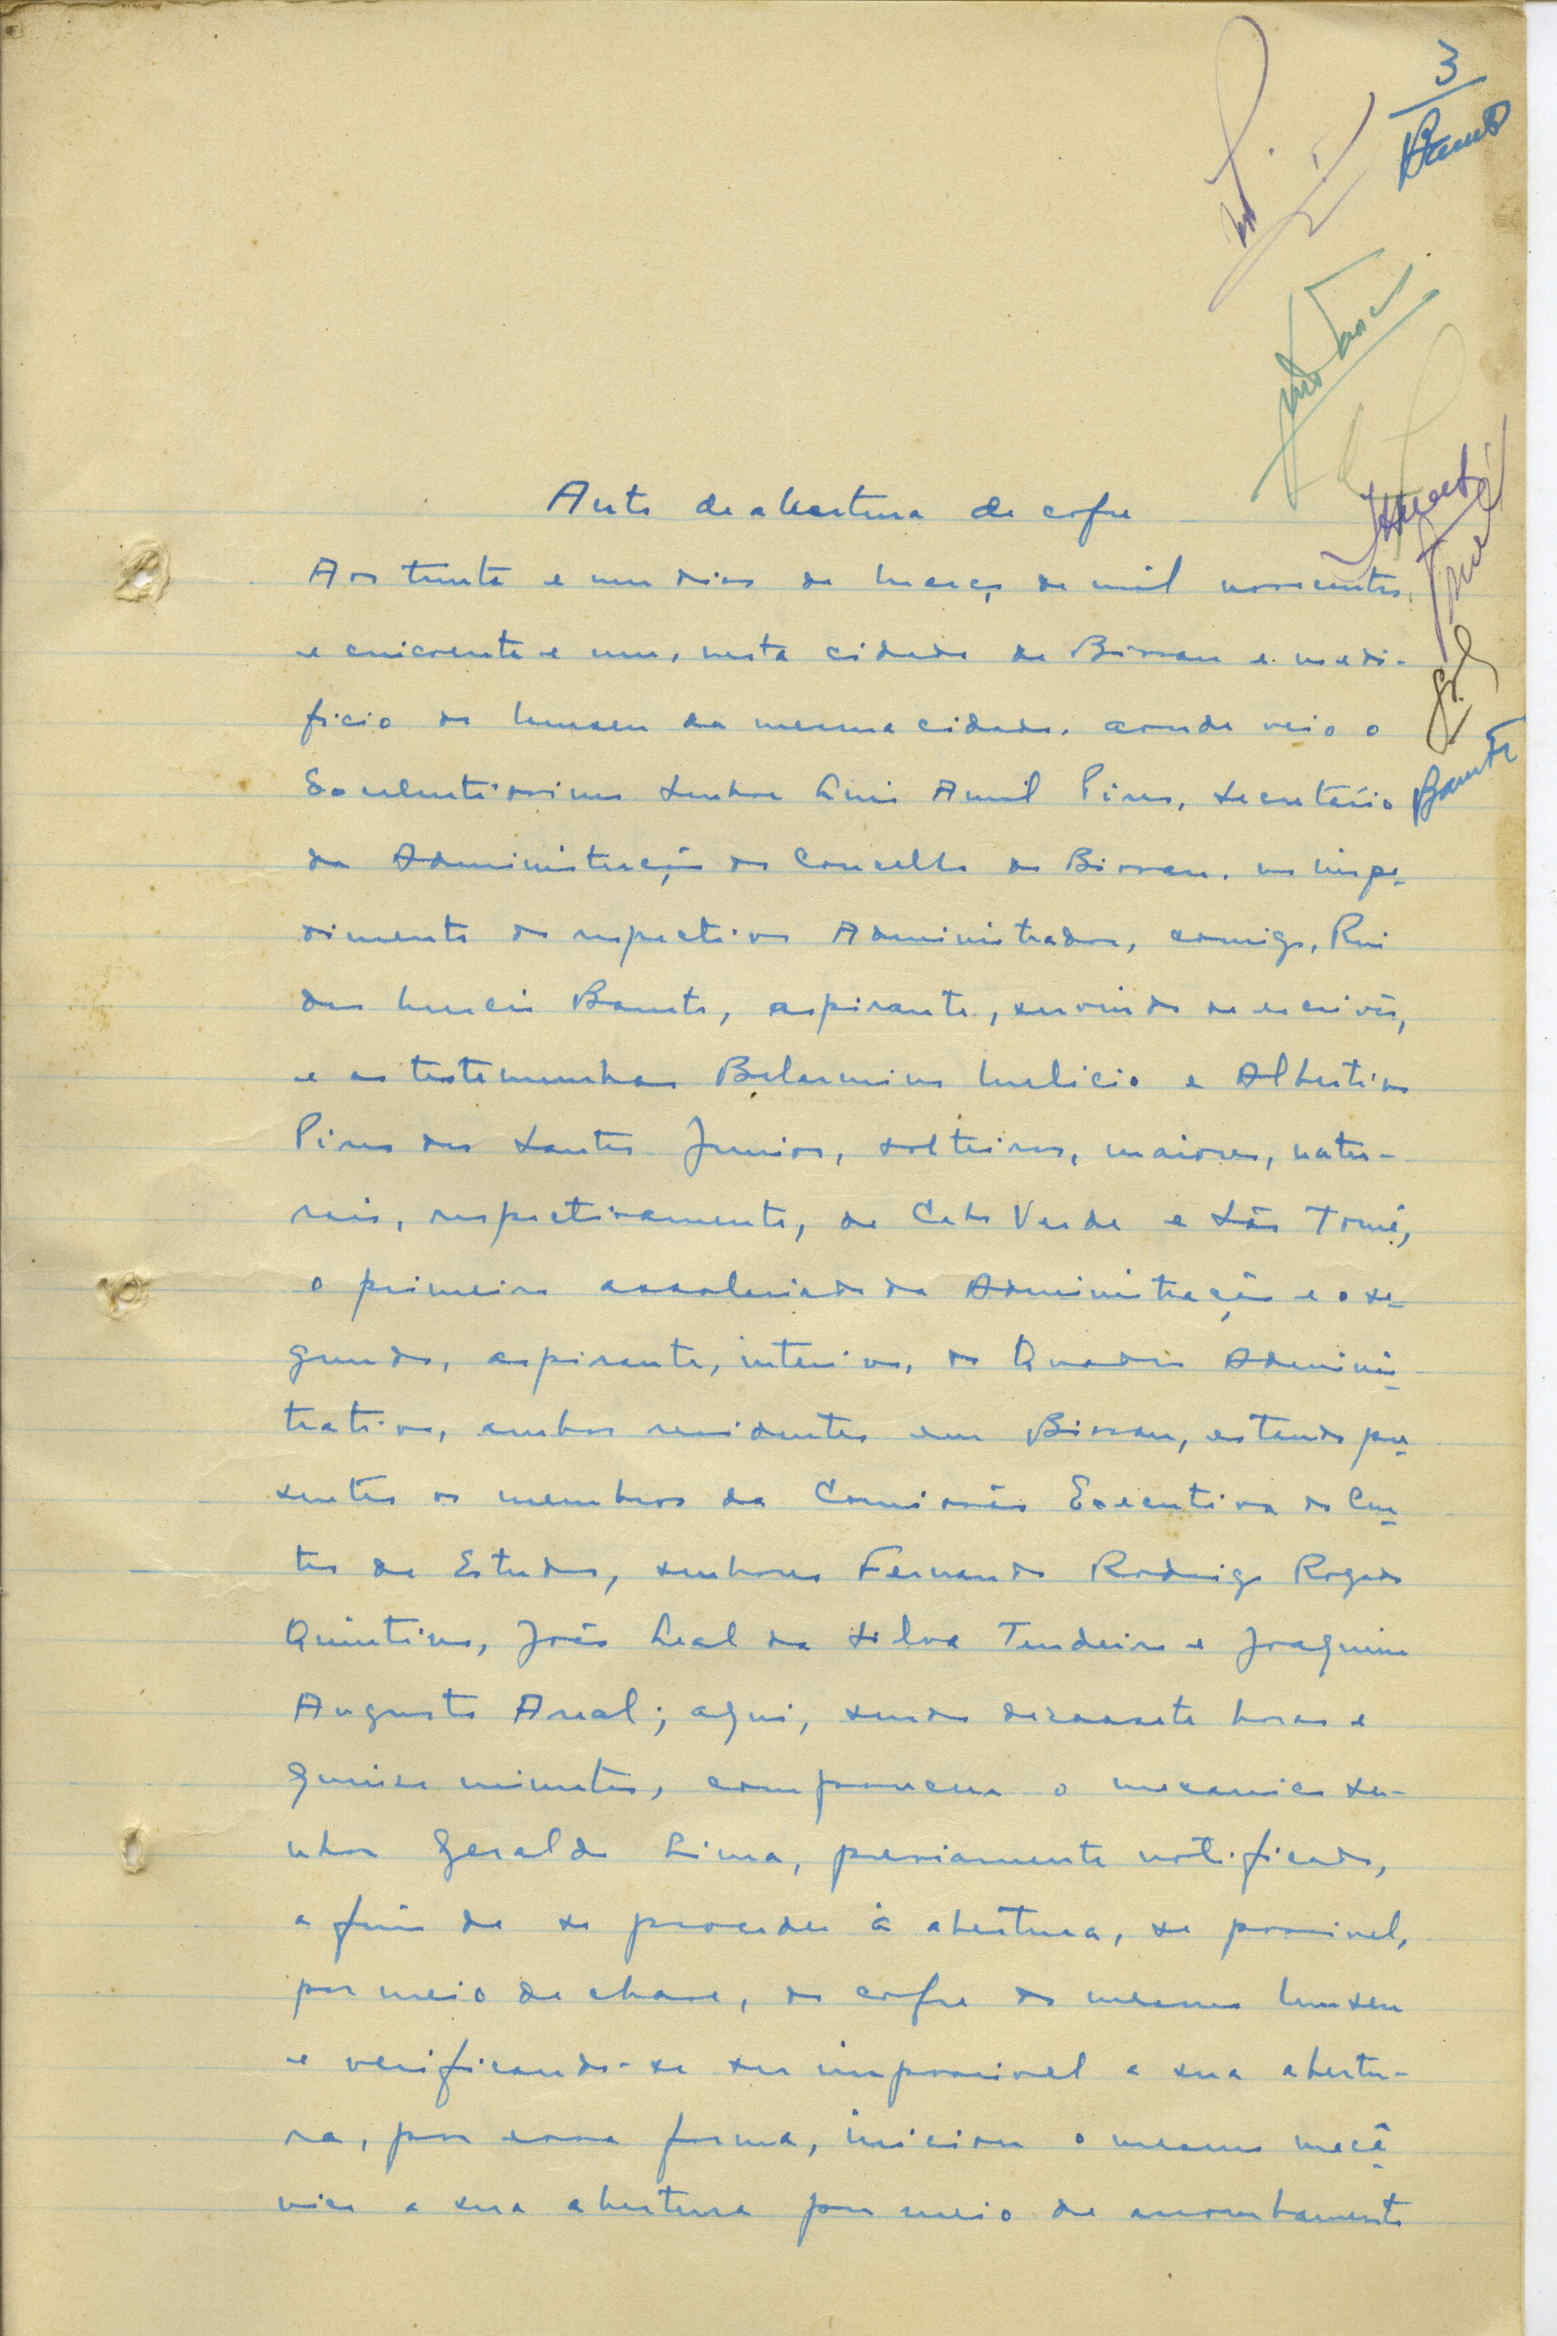 3
Barreto
Auto de abertura de cofre
Aos trinta e um dias de Março de mil novecentos
e cincoenta e um, nesta cidade de Bissau e no edi-
fício do Museu da mesma cidade, aonde veio o
Excelentíssimo Senhor Luis Amil Pires, secretário
da Administração do Concelho de Bissau, no impe-
dimento do respectivo Administrador, comigo, Rui
das Barreto, aspirante, servindo de escrivão,
e as testemunhas Belarmino Melicio e Albertino
Pires dos Santos Junior, solteiros, maiores, natu-
rais, respectivamente, de Cabo Verde e São Tomé,
o primeiro assalariado da Administração e o se-
gundo, aspirante, interino, do Quadro Adminis-
trativo, ambos residentes em Bissau, estando pre-
sentes os membros da Comissão Executiva do Cen-
tro de Estudos, senhores Fernando Rodrigo Rogado
Quintino, João Leal da Silva Tendeiro e Joaquim
Augusto Areal; aqui, sendo dezassete horas e
quinze minutos, compareceu o mecanico se-
nhor Geraldo Lima, previamente notificado,
a fim de se proceder à abertura, se possivel,
por meio de chave, do cofre do mesmo Museu
e verificando-se ser impossivel a sua abertu-
ra, por essa forma, iniciou o mesmo mecâ-
nico a sua abertura por meio de arrombamento
Barreto